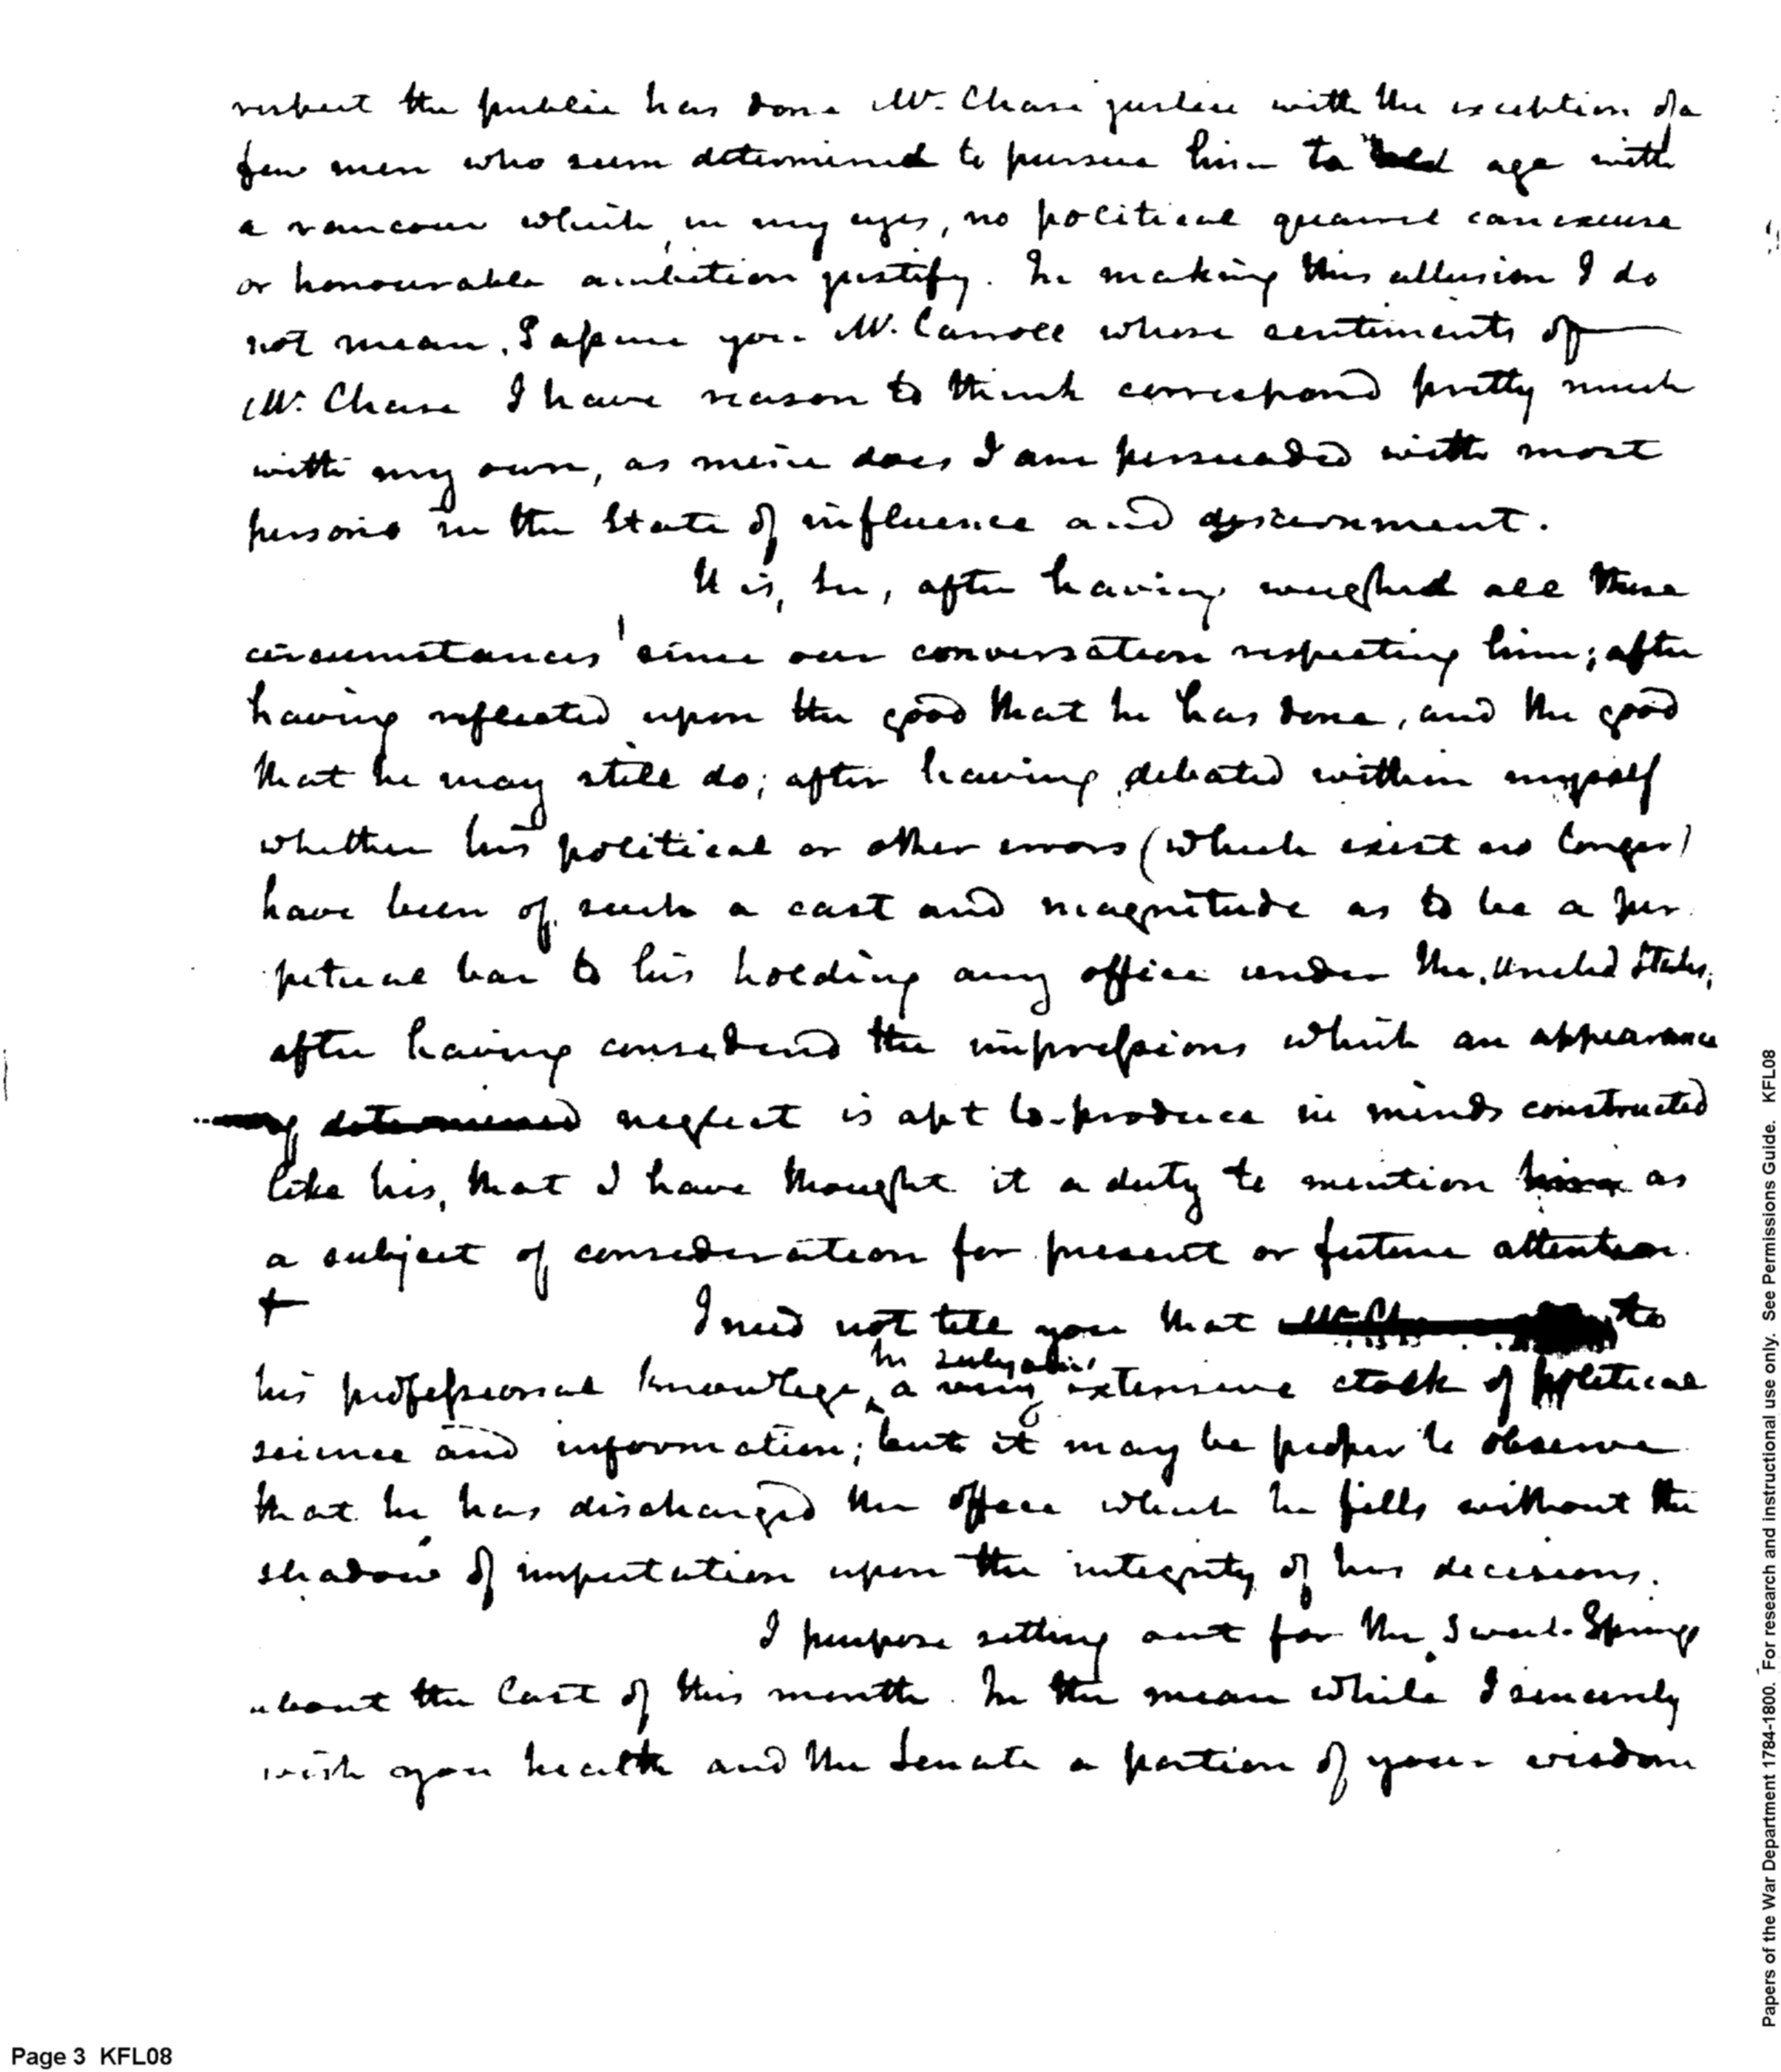 respect the public has done Mr. Chase justice with the exception of a
few men who seem determined to pursue him to old age with
a rancour which, in my eyes, no political quarrel can excuse
or honourable ambition justify. In making this allusion I do
not mean, I assure you Mr. Carroll whose sentiments of
Mr. Chase I have reason to think correspond pretty much
with my own, as mine does I am persuaded with most
persons in the State of influence and discernment.
It is, Sir, after having weighed all these
circumstances since our conversation respecting him; after
having reflected upon the good that he has done, and the good
that he may still do; after having debated within myself
whether his political or other errors (which exist no longer)
have been of such a cast and magnitude as to be a per
petual bar to his holding any office under the United States;
after having considered the impressions which an appearance
of determined neglect is apt to produce in minds constructed
like his, that I have thought it a duty to mention him as
a subject of consideration for present or future attention.
+ I need not tell you that to
his professional knowlege, he subjoins
a very extensive stock of political
science and information; but it may be proper to observe
that he has discharged the office which he fills without the
shadow of imputation upon the integrity of his decisions.
I purpose setting out for the Sweet Springs
about the last of this month. In the mean while I sincerely
wish you health and the Senate a portion of your wisdom
Page 3 KFL08
Papers of the War Department 1784-1800. For research and instructional use only. See Permissions Guide. KFL08